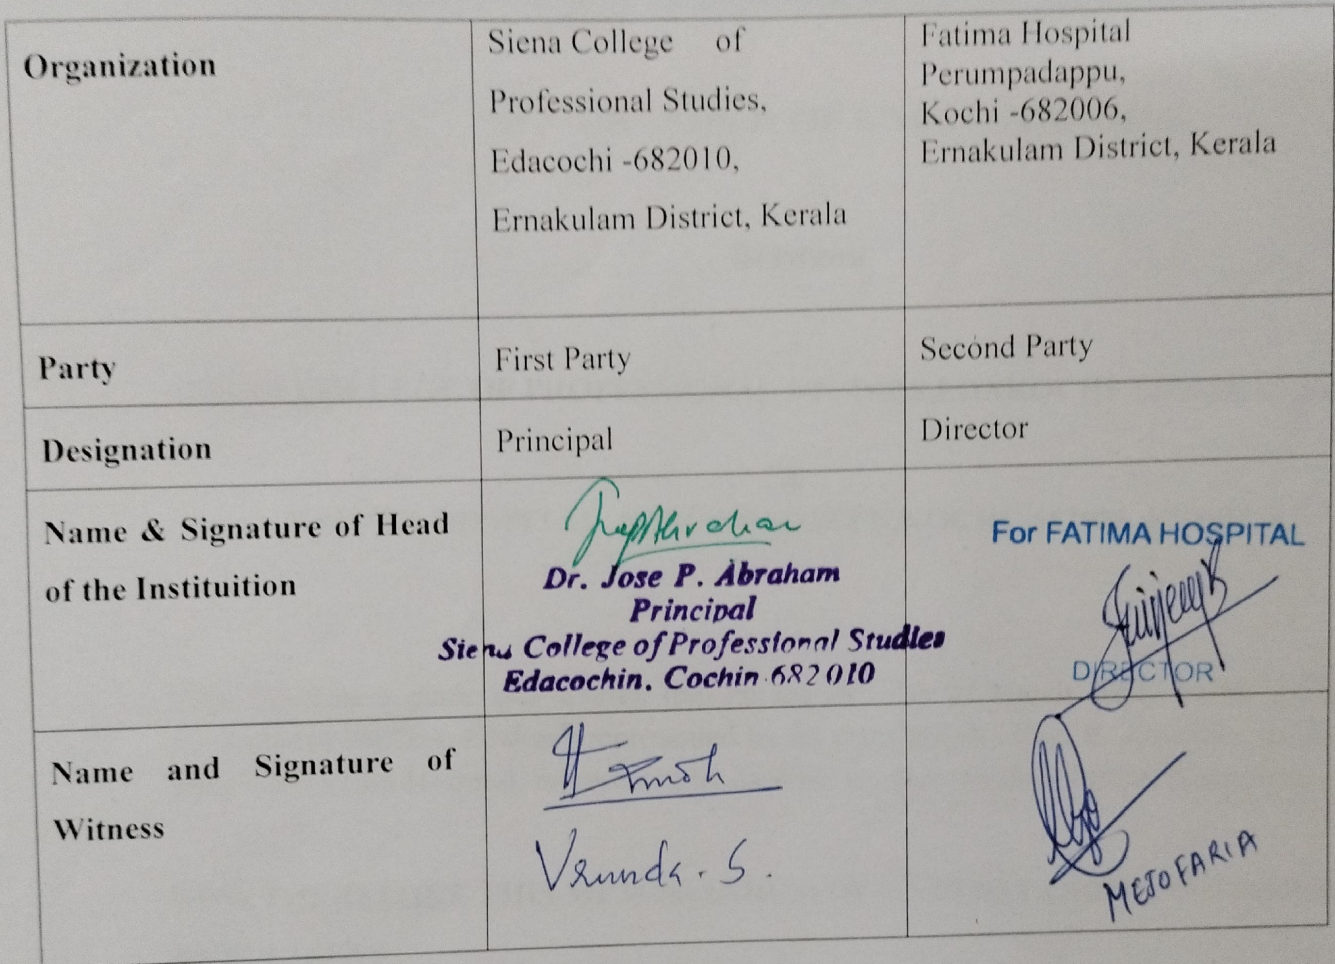 Organization
Siena College of
Professional Studies,
Edacochi -682010,
Ernakulam District, Kerala
Fatima Hospital
Perumpadappu,
Kochi -682006,
Ernakulam District, Kerala
Party
First Party
Second Party
Designation
Principal
Director
Name & Signature of Head
of the Instituition
Dr. Jose P. Abraham
Principal
Siena College of Professional Studies
Edacochin. Cochin 682010
For FATIMA HOSPITAL
DIRECTOR
Name and Signature of
Witness
Vrunda. S.
MEJO FARIA